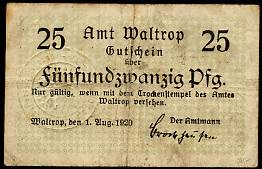 25 Amt Waltrop 25
Gutschein
über
Fünfundzwanzig Pfg.
Nur gültig, wenn mit dem Trockenstempel des Amtes
Waltrop versehen.
Waltrop, den 1. Aug. 1920 Der Amtmann